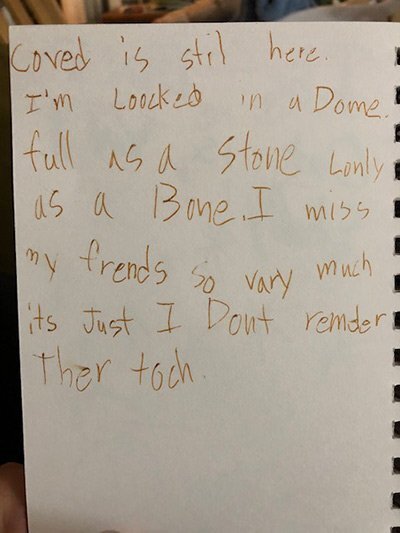 Coved is stil here.
I'm Loocked in a Dome.
full as a Stone Lonly
as a Bone. I miss
my frends so vary much
its Just I Dont remder
Ther toch.